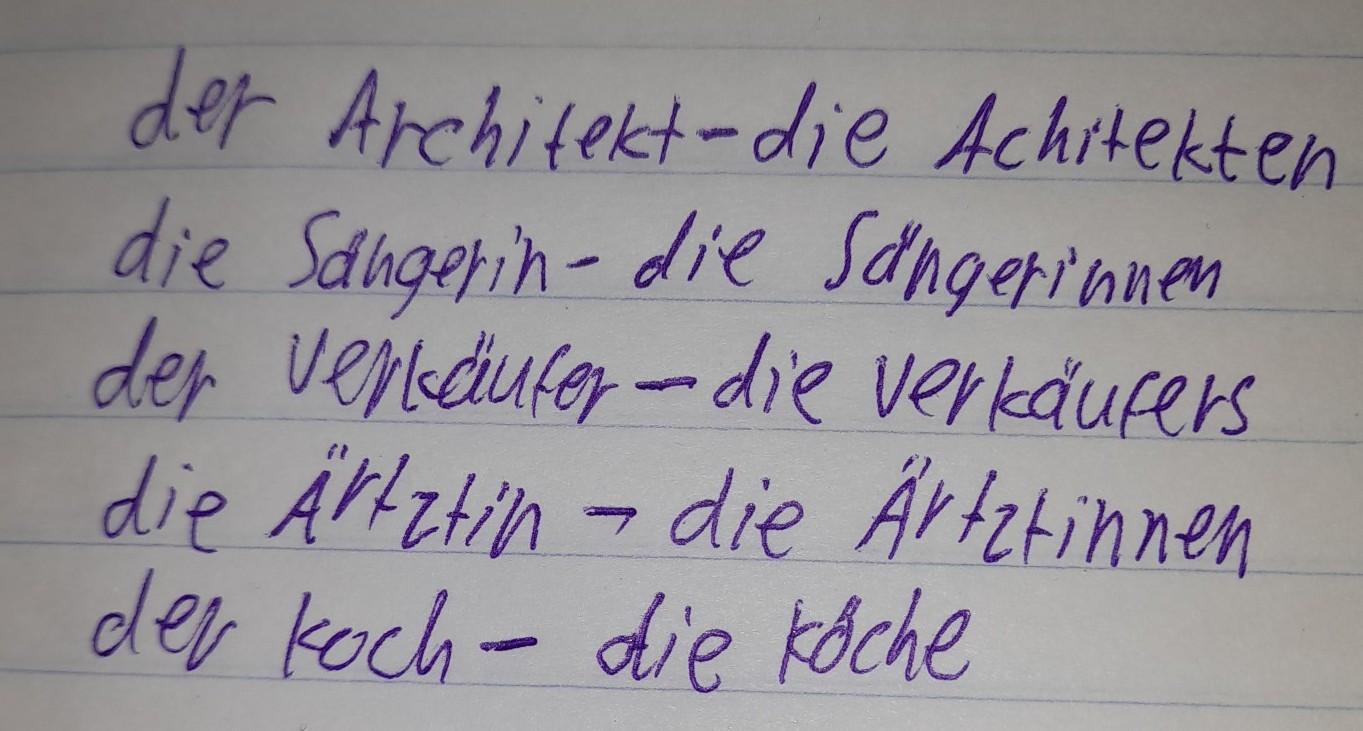 der Architekt - die Achitekten
die Sängerin - die Sängerinnen
der Verkäufer - die Verkäufers
die Ärtztin - die Ärtztinnen
der Koch - die Köche